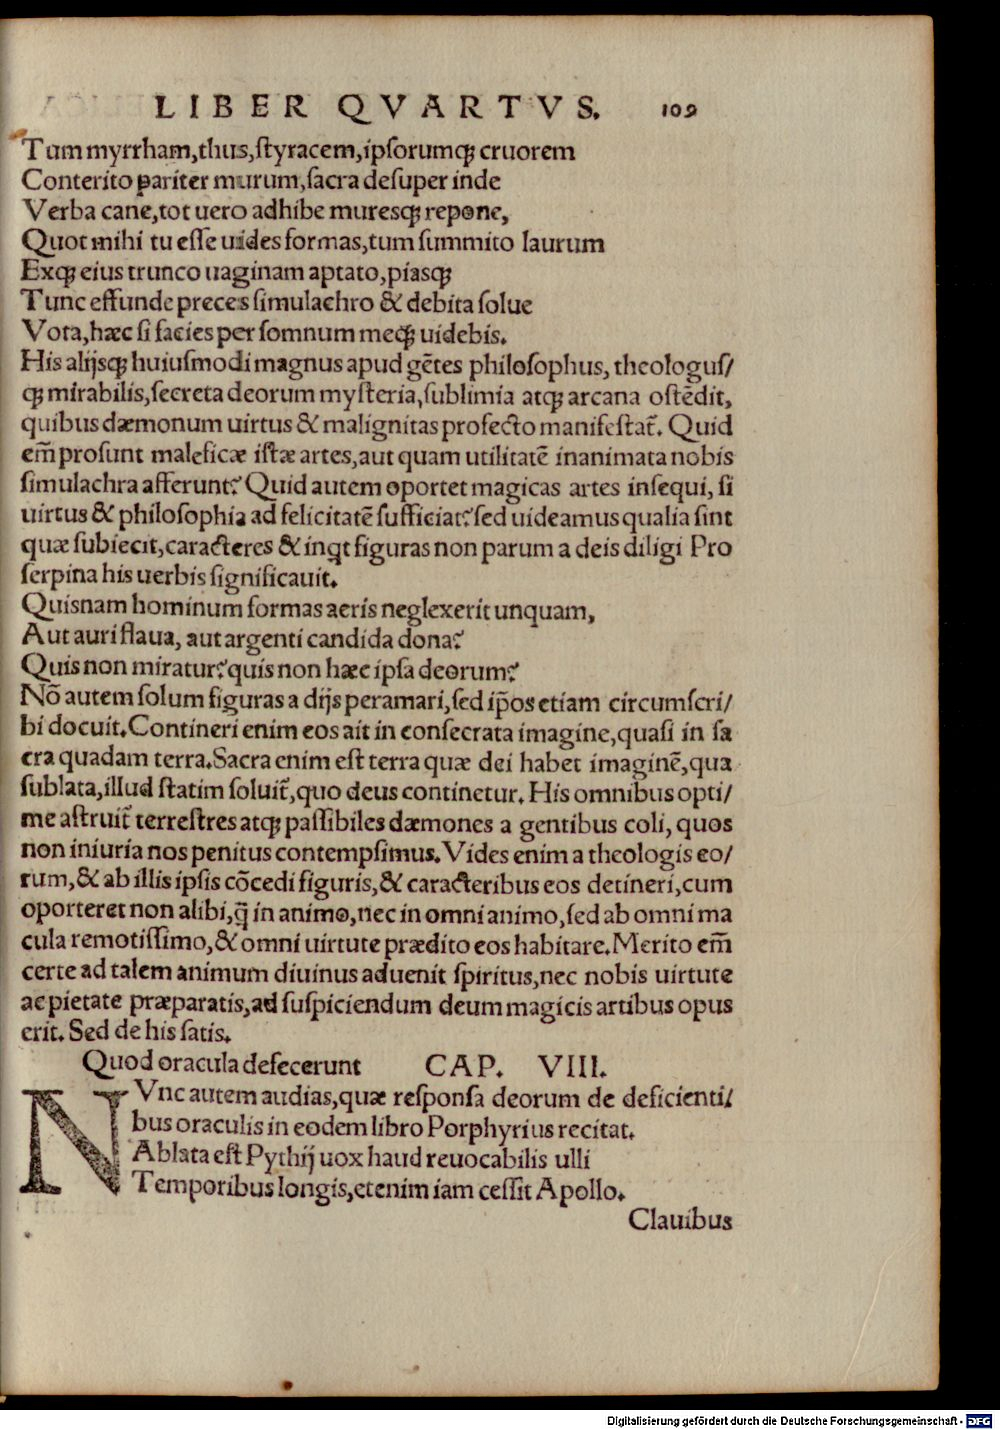 LIBER QVARTVS. 109
Tum myrrham,thus,ſtyracem,ipſorumqꝫ cruorem
Conterito pariter murum,ſacra deſuper inde
Verba cane,tot uero adhibe muresqꝫ repone,
Quot mihi tu eſſe uides formas,tum ſummito laurum
Exqꝫ eius trunco uaginam aptato,piasqꝫ
Tunc effunde preces ſimulachro & debita ſolue
Vota,hæc ſi facies per ſomnum meqꝫ uidebis.
His alijsqꝫ huiuſmodi magnus apud gētes philoſophus, theologuſ/
qꝫ mirabilis,ſecreta deorum myſteria,ſublimia atqꝫ arcana oſtēdit,
quibus dæmonum uirtus & malignitas profecto manifeſtat᷒. Quid
em̄ proſunt maleficæ iſtæ artes,aut quam utilitatē inanimata nobis
ſimulachra afferunt? Quid autem oportet magicas artes inſequi, ſi
uirtus & philoſophia ad felicitatē ſufficiat?ſed uideamus qualia ſint
quæ ſubiecit,caracteres & inqt figuras non parum a deis diligi Pro
ſerpina his uerbis ſignificauit.
Quisnam hominum formas aeris neglexerit unquam,
Aut auri flaua, aut argenti candida dona?
Quis non miratur?quis non hæc ipſa deorum?
Nō autem ſolum figuras a dijs peramari,ſed ip̄os etiam circumſcri/
bi docuit.Contineri enim eos ait in conſecrata imagine,quaſi in ſa
cra quadam terra.Sacra enim eſt terra quæ dei habet imaginē,qua
ſublata,illud ſtatim ſoluit᷒,quo deus continetur. His omnibus opti/
me aſtruit᷒ terreſtres atqꝫ paſſibiles dæmones a gentibus coli, quos
non iniuria nos penitus contempſimus.Vides enim a theologis eo/
rum,& ab illis ipſis cōcedi figuris,& caracteribus eos detineri,cum
oporteret non alibi,q̄ in animo,nec in omni animo,ſed ab omni ma
cula remotiſſimo,& omni uirtute prædito eos habitare.Merito em̄
certe ad talem animum diuinus aduenit ſpiritus,nec nobis uirtute
ac pietate præparatis,ad ſuſpiciendum deum magicis artibus opus
erit. Sed de his ſatis.
Quod oracula defecerunt CAP. VIII.
NVnc autem audias,quæ reſponſa deorum de deficienti/
bus oraculis in eodem libro Porphyrius recitat.
Ablata eſt Pythij uox haud reuocabilis ulli
Temporibus longis,etenim iam ceſſit Apollo.
Clauibus
Digitalisierung gefördert durch die Deutsche Forschungsgemeinschaft - DFG